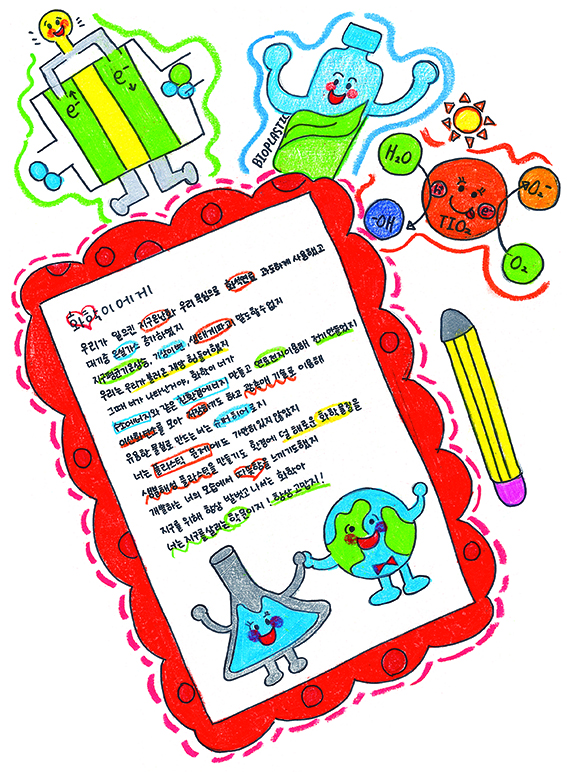 e⁻
e⁻
BIOPLASTIC
H₂O
H
e⁻
TIO₂
O₂⁻
·OH
O₂
화학이에게!
우리가 일으킨 지구온난화 우리 욕심으로 화석연료 과도하게 사용했고
대기중 온실가스 증가하였지
지구평균기온상승, 기상이변 생태계파괴 말도할수없지
우리는 우리가 불러온 재앙 힘들어했지
그때 네가 나타난거야, 화학이 너가
수소에너지와 같은 친환경에너지 만들고 연료전지이용해 전기만들었지
이산화탄소를 모아 저장하기도 하고 광촉매 기술로 이용해
유용한 물질로 만드는 너는 슈퍼히어로지
너는 플라스틱 문제에도 가만히 있지 않았지
생분해성 플라스틱을 만들기도 환경에 덜 해로운 화학물질을
개발하는 너의 모습에서 감동을 느끼기도했지
지구를 위해 항상 발벗고 나서는 화학아
너는 지구를살리는 학문이지! 항상 고맙지!